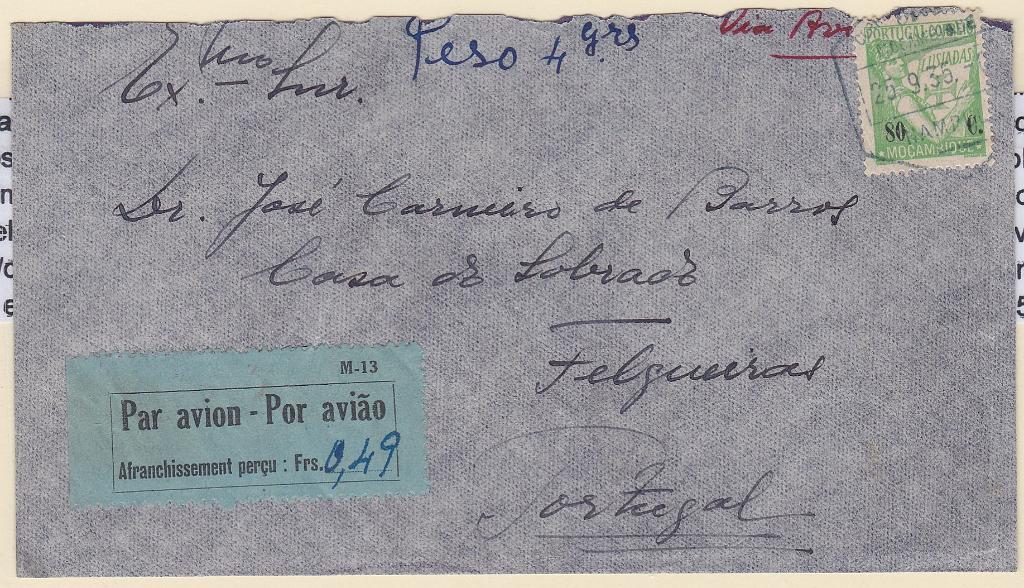 Peso 4 grs
Via
Exmo. Snr.
PORTUGAL CORREIO
LUSIADAS
80 C.
MOÇAMBIQUE
Dr. José Carneiro de Barros
Casa do Sobrado
Felgueiras
Portugal
M-13
Par avion - Por avião
Afranchissement perçu : Frs. 0,49